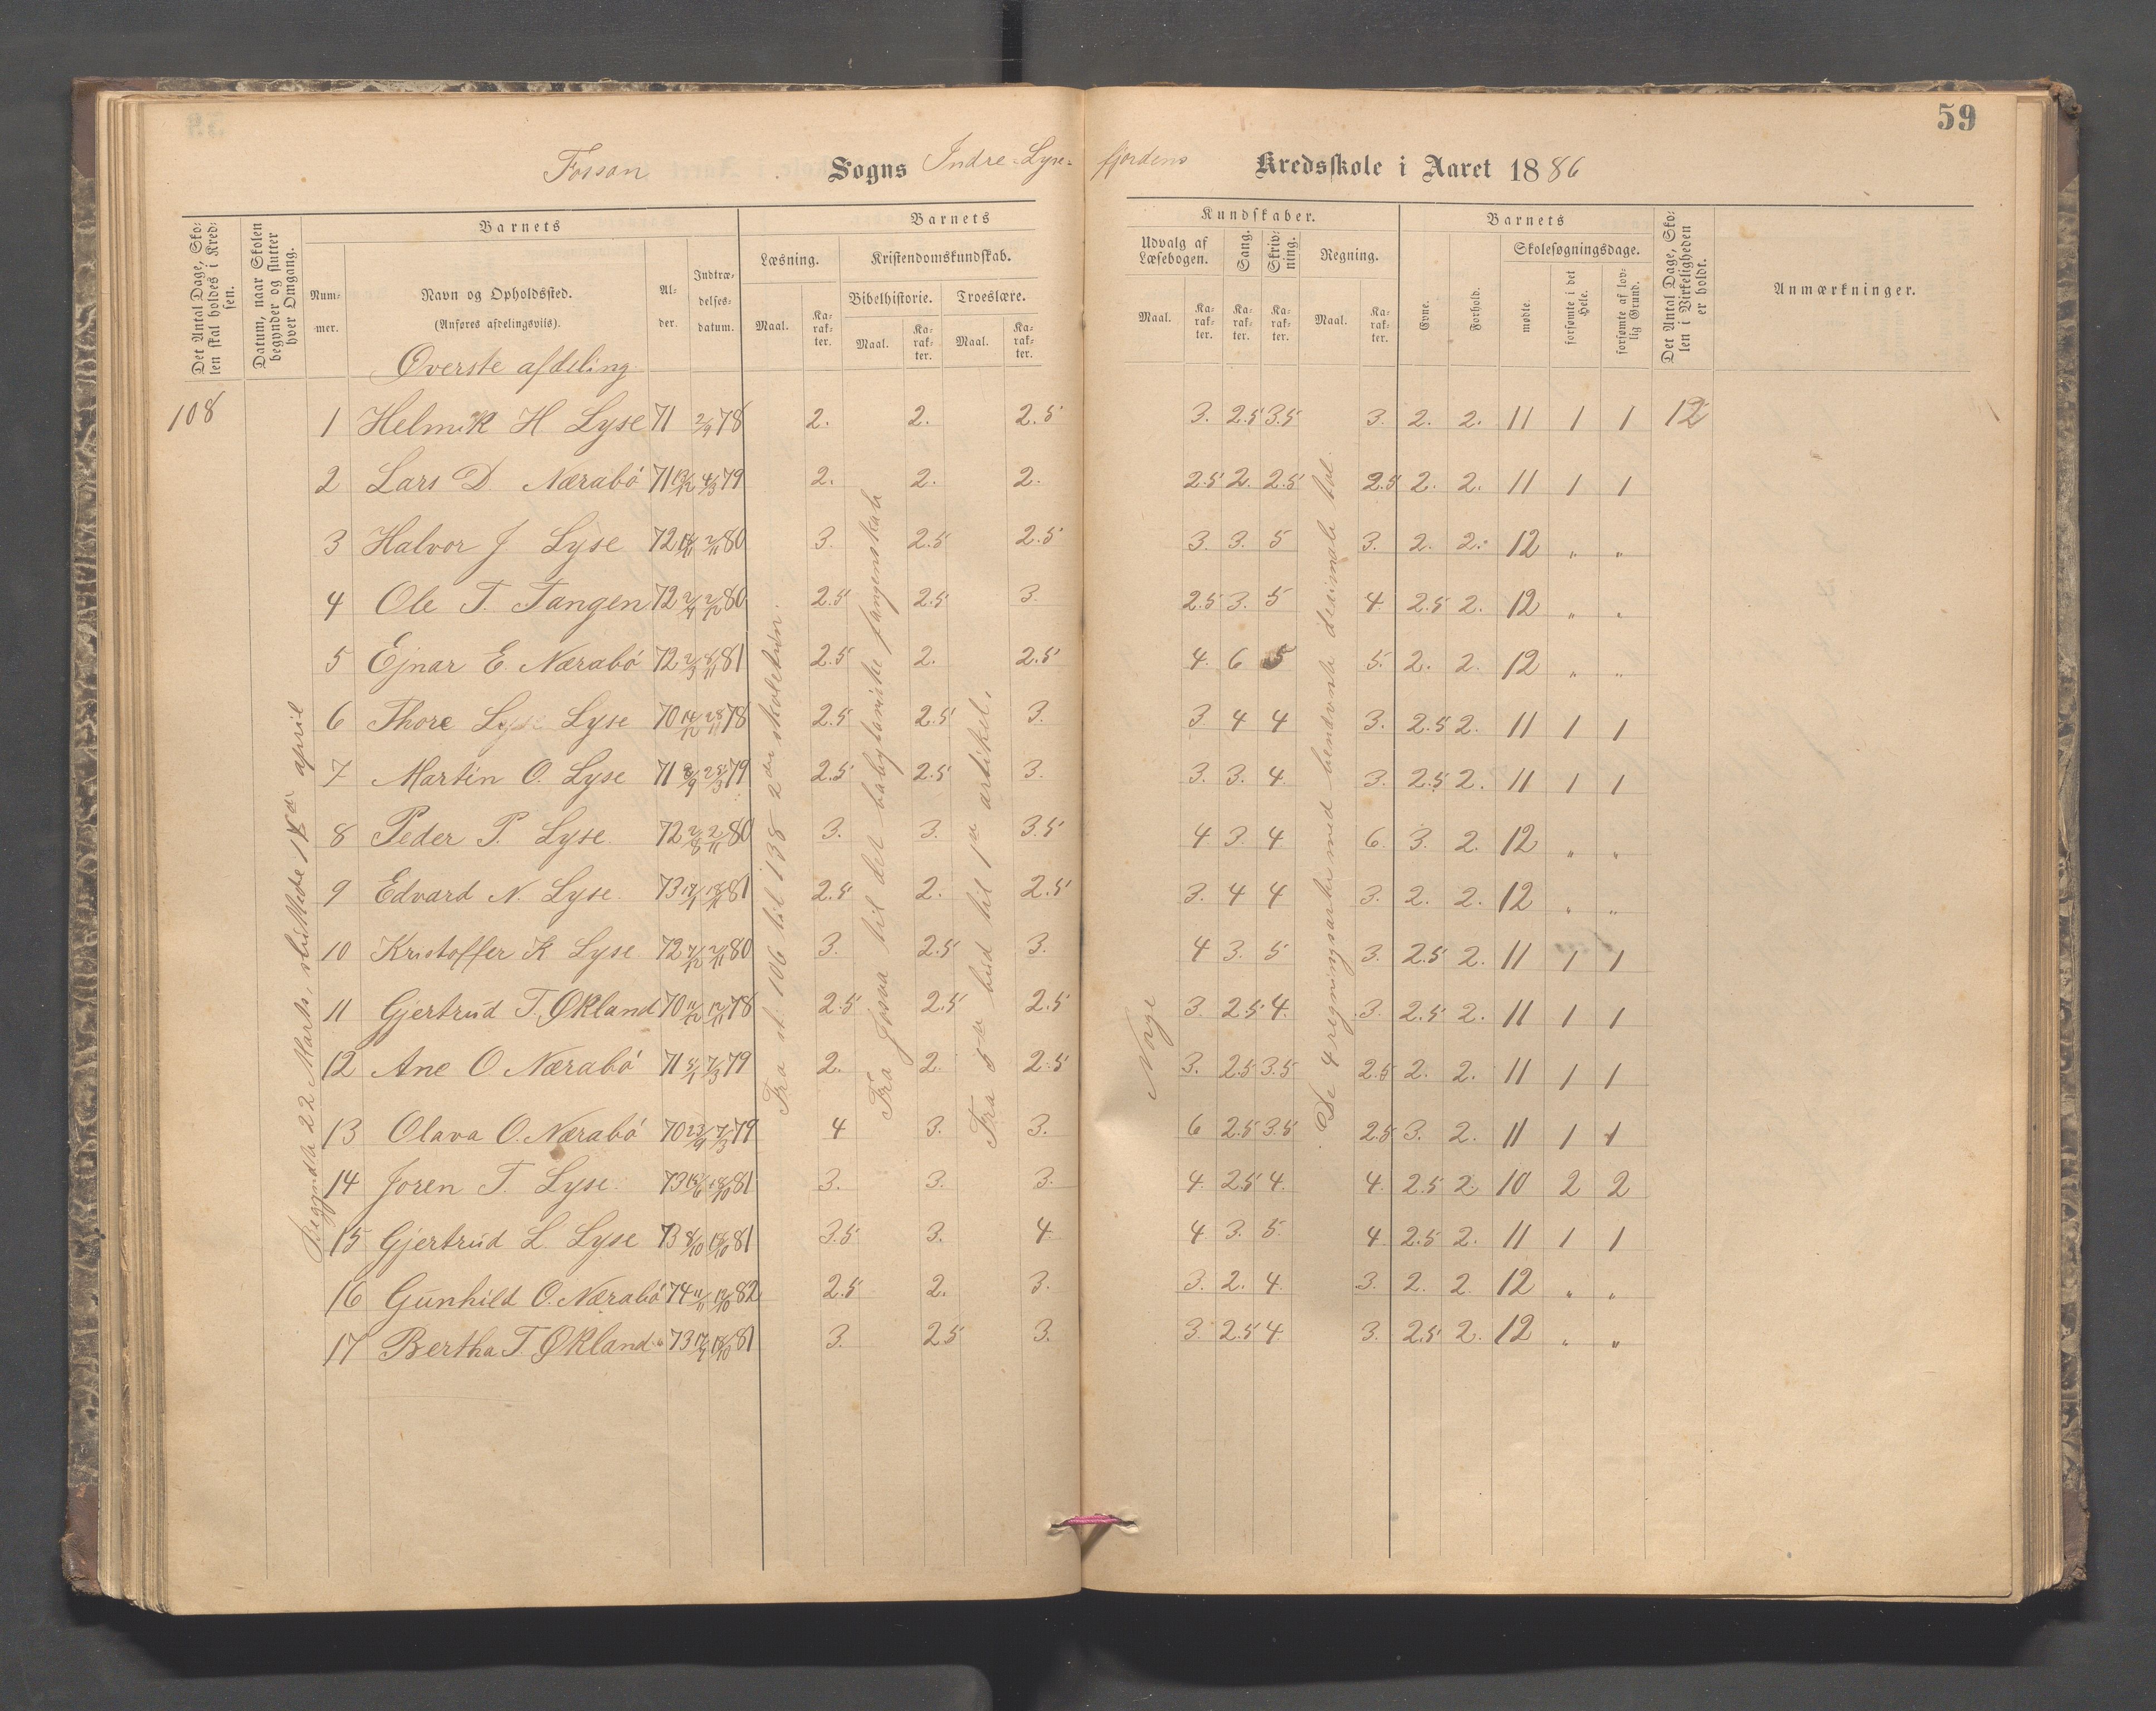 59
Fossan Sogns Indre-Lyse-fjordens Kredsskole i Aaret 1886
Det Antal Dage, Skolen skal holdes i Kredsen.
Datum, naar Skolen begynder og slutter hver Omgang.
Barnets
Nummer.
Navn og Opholdssted.
(Anføres afdelingsviis).
Alder.
Indtrædelsesdatum.
Barnets
Kundskaber.
Læsning.
Maal.
Karakter.
Kristendomskundskab.
Bibelhistorie.
Maal.
Karakter.
Troeslære.
Maal.
Karakter.
Udvalg af Læsebogen.
Maal.
Karakter.
Sang.
Karakter.
Skrivning.
Karakter.
Regning.
Maal.
Karakter.
Barnets
Evne.
Forhold.
Skolesøgningsdage.
mødte.
forsømte i det Hele.
forsømte af lovlig Grund.
Det Antal Dage, Skolen i Virkeligheden er holdt.
Anmærkninger.
Øverste afdeling
108
Begyndte 22 Marts, sluttede 14de april
Fra st. 106 til 138 2den skoletrin.
Fra Josva til det babyloniske fangenskab
Fra 5te bud til 1ste artikel.
Norge
De 4 regningsarter med benævnte desimale tal.
1 Helmik H Lyse 71 2/9 78 2. 2. 2.5 3. 2.5 3.5 3. 2. 2. 11 1 1 12
2 Lars D. Nærabö 71 4/3 79 2. 2. 2. 2.5 2. 2.5 2.5 2. 2. 11 1 1
3 Halvor J Lyse 72 2/11 80 3. 2.5 2.5 3. 3. 5 3. 2. 2. 12 " "
4 Ole T. Tangen 72 2/12 80 2.5 2.5 3 2.5 3. 5 4. 2.5 2. 12 " "
5 Ejnar E. Nærabö 72 2/3 8/11 81 2.5 2. 2.5 4. 6 5 5. 2. 2. 12 " "
6 Thore Lyse 70 14/12 28/11 78 2.5 2.5 3. 3 4 4 3. 2.5 2. 11 1 1
7 Martin O. Lyse 71 8/9 79 2.5 2.5 3. 3. 3. 4. 3. 2.5 2. 11 1 1
8 Peder P. Lyse. 72 2/8 2/11 80 3. 3. 3.5 4 3. 4 6. 3. 2. 12 " "
9 Edvard N. Lyse. 73 81 2.5 2. 2.5 3. 4 4 3. 2. 2. 12 " "
10 Kristoffer K Lyse. 72 2/11 80 3. 2.5 3. 4 3. 5 3. 2.5 2. 11 1 1
11 Gjertrud T. Økland 70 11/12 12/11 78 2.5 2.5 2.5 3. 2.5 4. 3. 2.5 2. 11 1 1
12 Ane O Nærabö 71 7/3 79 2. 2. 2.5 3. 2.5 3.5 2.5 2. 2. 11 1 1
13 Olava O. Nærabö 70 23/9 7/3 79 4 3. 3. 6 2.5 3.5 2.5 3. 2. 11 1 1
14 Joren T. Lyse. 73 18/10 81 3. 3. 3. 4. 2.5 4. 4. 2.5 2. 10 2 2
15 Gjertrud L. Lyse 73 8/10 18/10 81 3.5 3. 4. 4. 3. 5. 4 2.5 2. 11 1 1
16 Gunhild O. Nærabö 74 11/11 82 2.5 2. 3. 3. 2. 4. 3. 2. 2. 12 " "
17 Bertha T. Økland. 73 18/10 81 3. 2.5 3. 3. 2.5 4. 3. 2.5 2. 12 " "